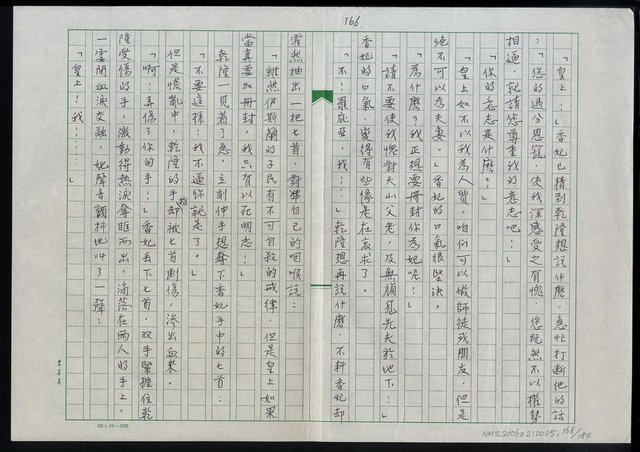 166
「皇上！」香妃已猜到乾隆想說什麼，急忙打斷他的話
：「您的過分恩寵，使我深感受之有愧，您既然不以權勢
相逼，就請您尊重我的意志吧！」
「你的意志是什麼？」
「皇上如不以我為人質，咱们可以做師徒或朋友，但是
絕不可以為夫妻。」香妃的口氣很堅決。
「為什麼？我正想要冊封你為妃呢！」
「請不要使我愧對天山父老，及無顏見先夫於地下！」
香妃的口氣，變得有些像是在哀求了。
「不！羅底亞，我……」乾隆想再說什麼，不料香妃却
霍然抽出一把匕首，對準自己的咽喉說：
「雖然伊斯蘭的子民有不可自殺的戒律，但是皇上如果
當真要加冊封，我只有以死明志！」
乾隆一見着了急，立刻伸手想奪下香妃手中的匕首：
「不要這樣！我不逼你就是了。」
但是慌亂中，乾隆的手指却被匕首割傷，滲出血來。
「啊！弄傷了你的手！」香妃丟下匕首，双手緊握住乾
隆受傷的手，激動得熱淚奪眶而出，滴落在两人的手上，
一霎間血淚交融，她聲音顫抖地叫了一聲：
「皇上！我……」
20×25=500
NMTL20060210005. 168/184